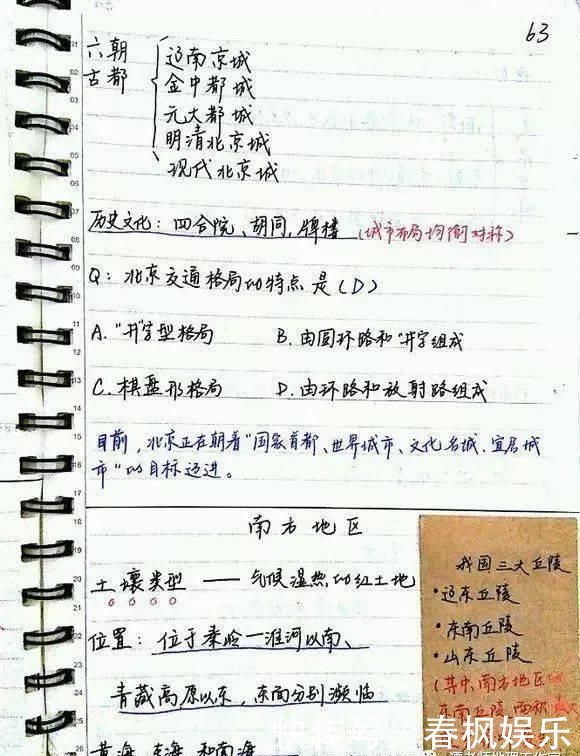 63
六朝
古都
辽南京城
金中都城
元大都城
明清北京城
现代北京城
历史文化：四合院、胡同、牌楼（城市布局均衡对称）
Q：北京交通格局的特点是（D）
A."井"字型格局 B.由圆环路和"井"字组成
C.棋盘形格局 D.由环路和放射路组成
目前，北京正在朝着"国家首都、世界城市、文化名城、宜居城
市"的目标迈进。
南方地区
土壤类型——气候湿热的红土地
位置：位于秦岭—淮河以南、
青藏高原以东，东面分别濒临
黄海、东海和南海
我国三大丘陵
·辽东丘陵
·东南丘陵
·山东丘陵
（其中南方地区
东南丘陵
春枫娱乐